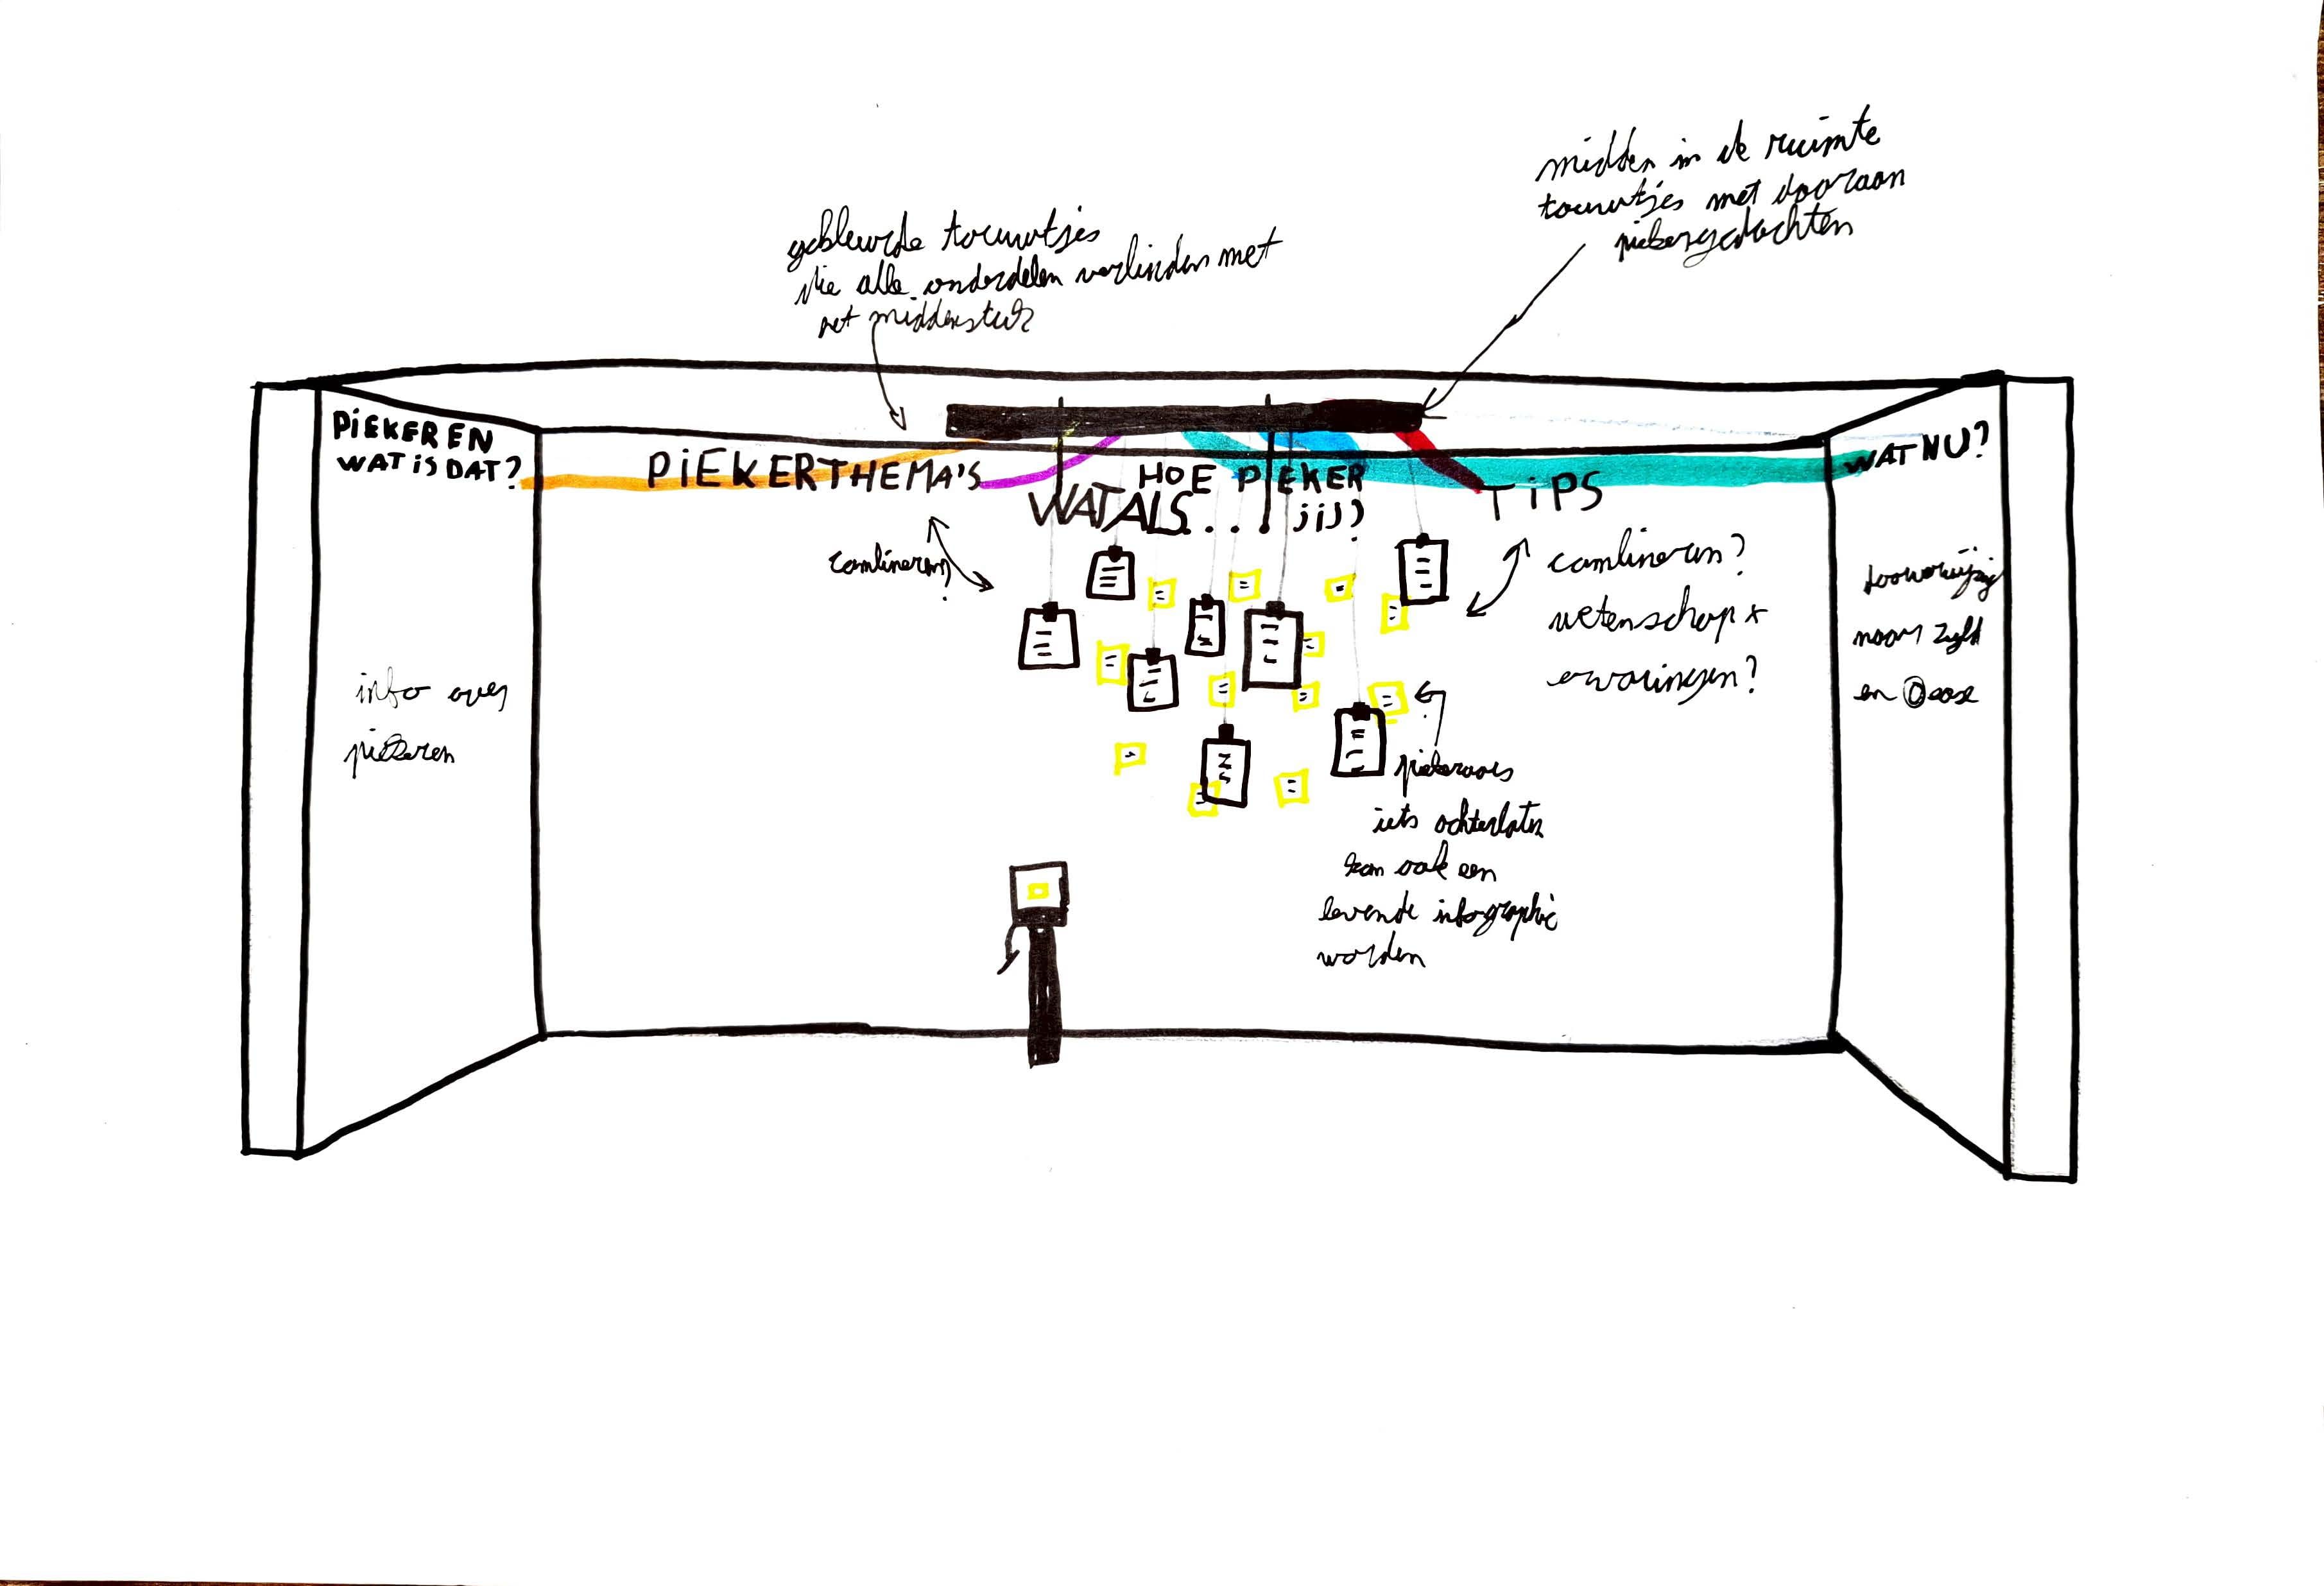 midden in de ruimte
touwtjes met daaraan
piekergedachten
gekleurde touwtjes
die alle onderdelen verbinden met
het middenstuk
PiEKEREN
WAT iS DAT?
PiEKERTHEMA'S
HOE PIEKER
jij?
WAT ALS...
TiPS
WAT NU?
combineren?
combineren?
wetenschap +
ervaringen?
doorverwijzing
naar
en @ease
info over
piekeren
piekeraars
iets achterlaten
kan ook een
levende infographic
worden